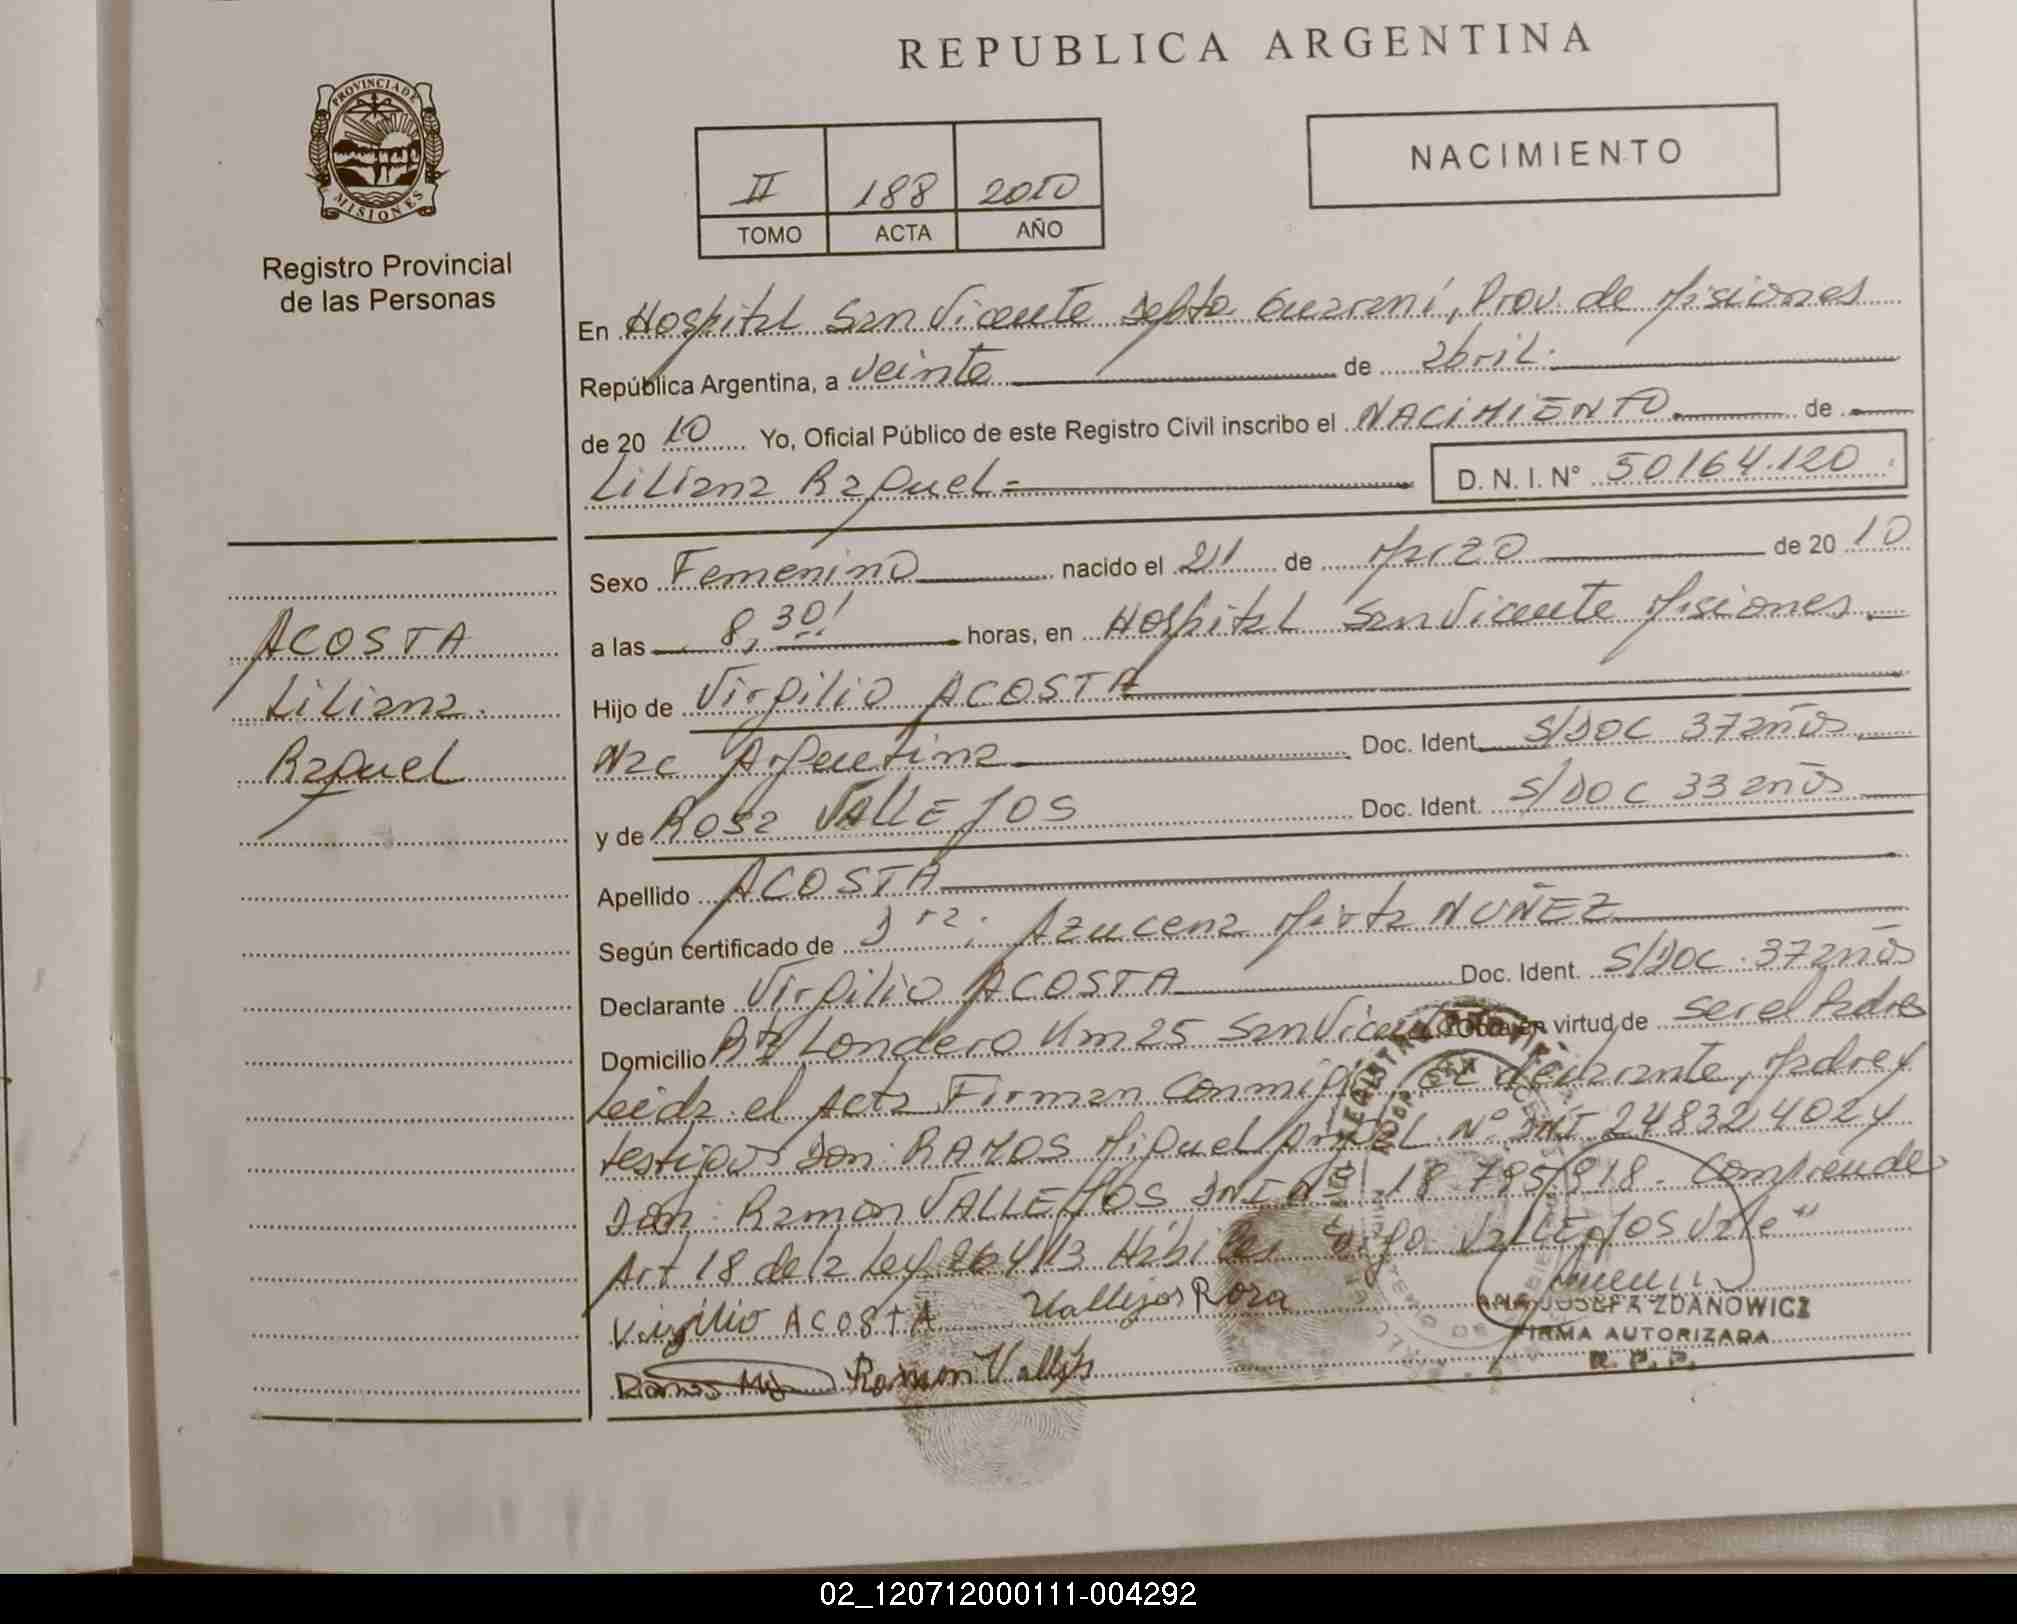 REPUBLICA ARGENTINA
PROVINCIA DE
MISIONES
Registro Provincial
de las Personas
II 188 2010
TOMO ACTA AÑO
NACIMIENTO
En Hospital San Vicente Depto Guaraní, Prov. de Misiones
República Argentina, a veinte de abril.
de 20 10 Yo, Oficial Público de este Registro Civil inscribo el NACIMIENTO de
Liliana Raquel
D. N. I. N° 50164.120
Sexo Femenino nacido el 21 de Marzo de 20 10
a las 8,30 horas, en Hospital San Vicente Misiones
Hijo de Virgilio ACOSTA
Nac Argentina Doc. Ident. S/DOC 37 años
y de Rosa VALLEJOS Doc. Ident. S/DOC 33 años
Apellido ACOSTA
Según certificado de Dra: Azucena Mirta NUÑEZ
Declarante Virgilio ACOSTA Doc. Ident. S/DOC 37 años
Domicilio Londero Km 25 San Vicente Obra en virtud de ser el Padre
Leida el Acta Firman Conmigo el declarante, Madre y
testigos Don: RAMOS Miguel Angel N° DNI 24832402 y
Don: Ramon VALLEJOS DNI N° 18 795 918. Comprende
Art 18 de la Ley 26413 Hábiles VALLEJOS Vale"
Virgilio ACOSTA Vallejos Rosa
Ramos Ramon Vallejos
ANA JOSEFA ZDANOWICZ
FIRMA AUTORIZADA
R. P. P.
ACOSTA
Liliana
Raquel
02_120712000111-004292